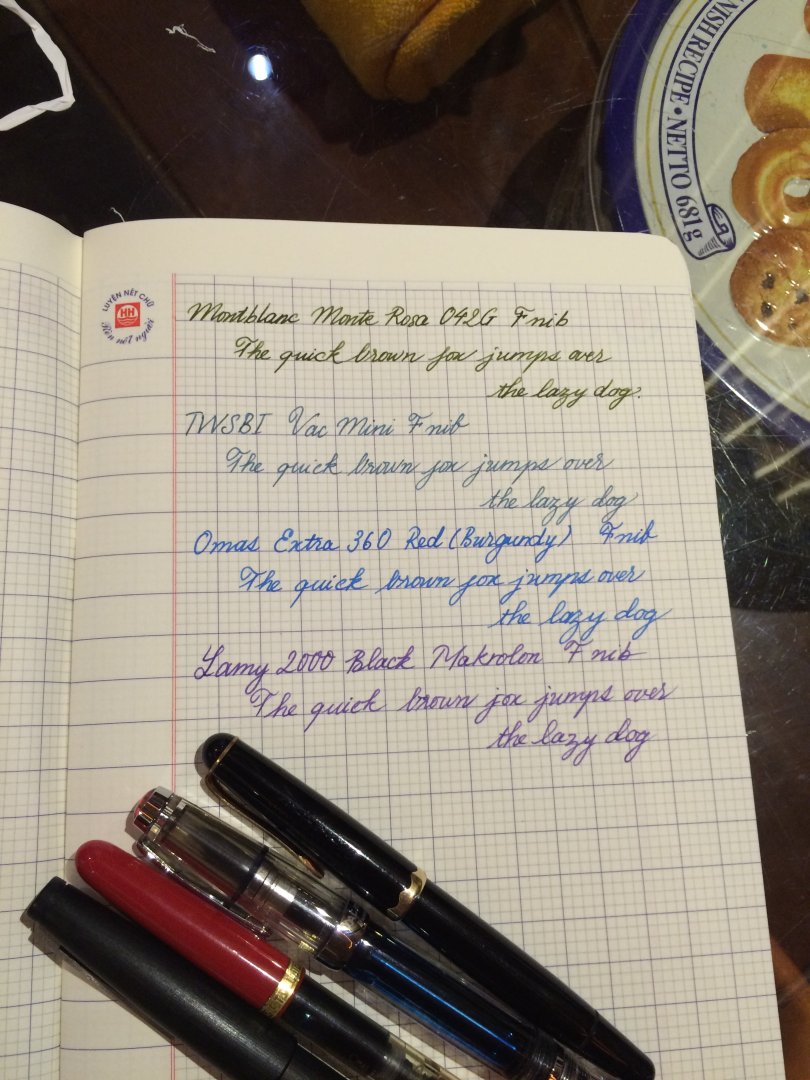 DANISH RECIPE • NETTO 681g
LUYỆN NÉT CHỮ
HH
Rèn nết người
Montblanc Monte Rosa 042G F nib
The quick brown fox jumps over
the lazy dog.
TWSBI Vac Mini F nib
The quick brown fox jumps over
the lazy dog
Omas Extra 360 Red (Burgundy) F nib
The quick brown fox jumps over
the lazy dog
Lamy 2000 Black Makrolon F nib
The quick brown fox jumps over
the lazy dog